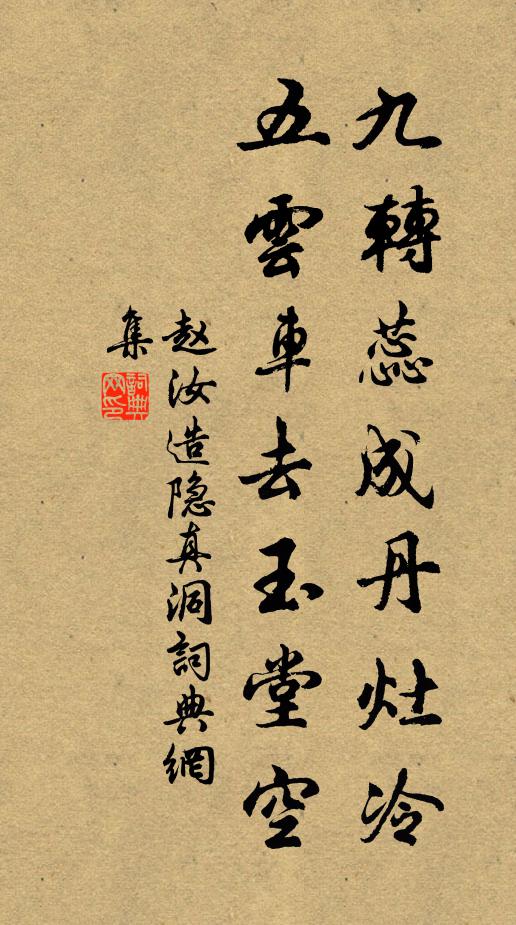 九轉蕊成丹灶冷
五雲車去玉堂空
赵汝造隐真洞詞典網
集
詞典網印